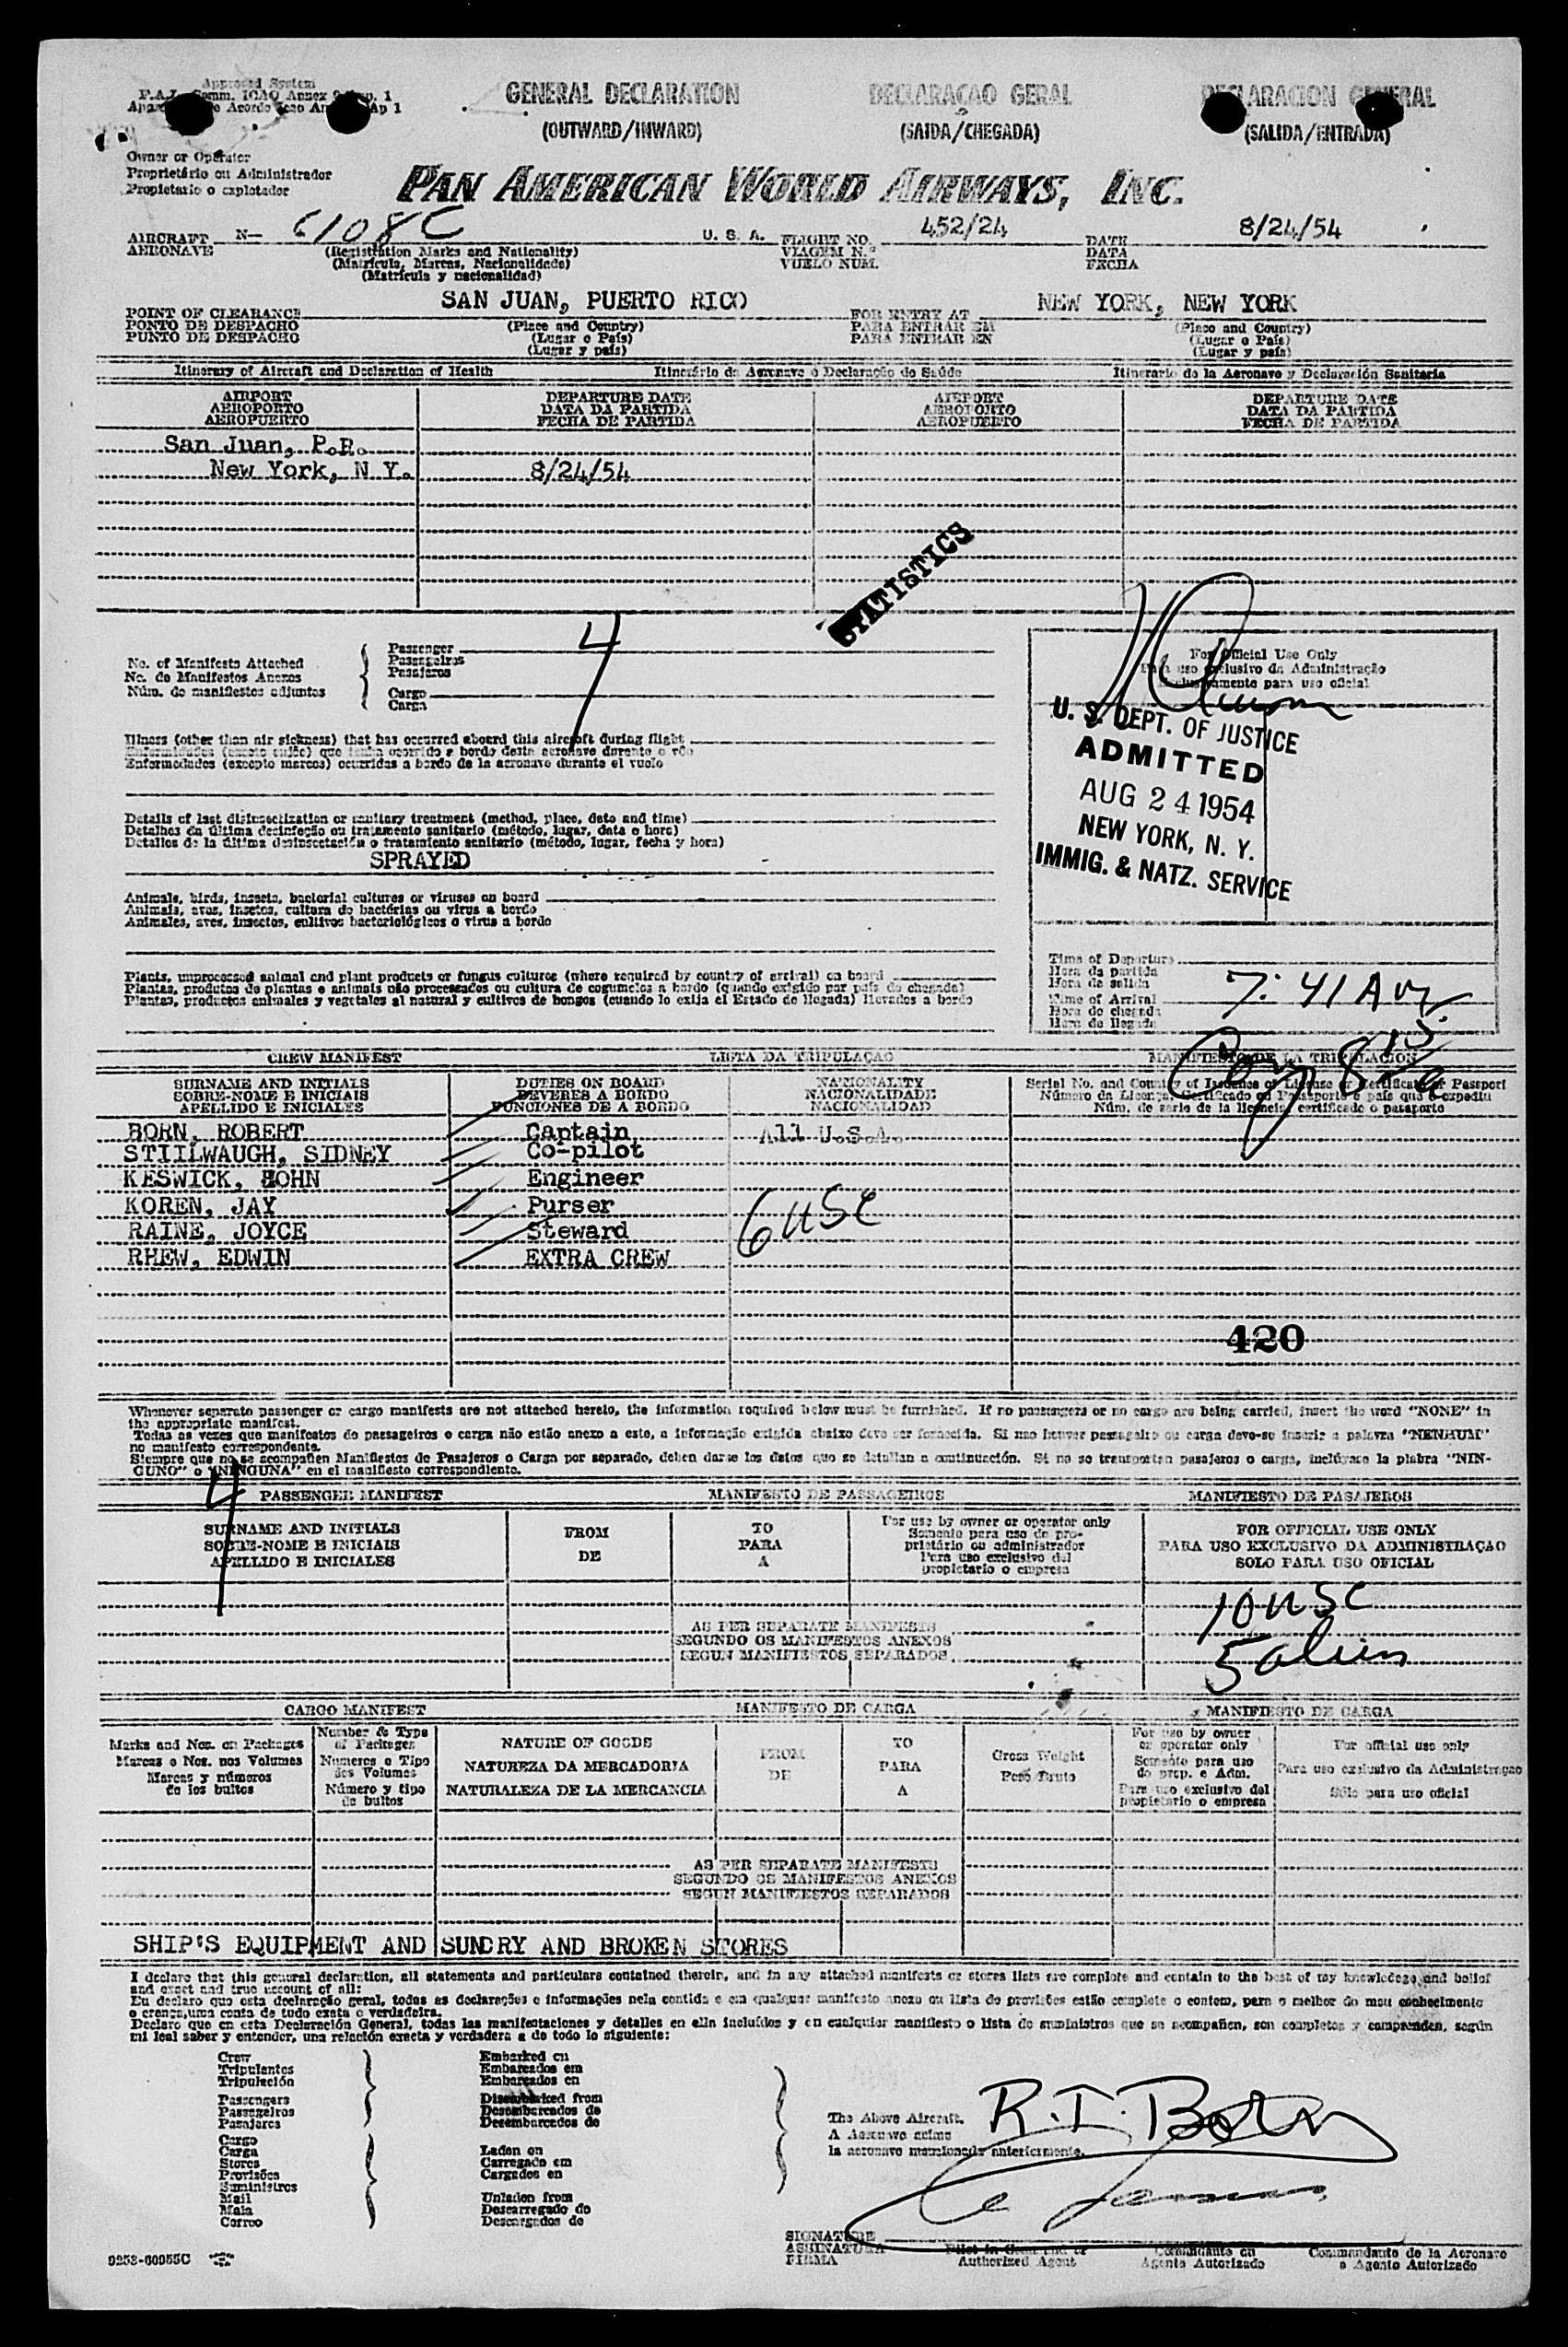 Approved System
F.A.L. Comm. ICAO Annex 9 Ap. 1
GENERAL DECLARATION
DECLARAÇÃO GERAL
DECLARACION GENERAL
(OUTWARD/INWARD)
(SAIDA/CHEGADA)
(SALIDA/ENTRADA)
Owner or Operator
Proprietário ou Administrador
Propietario o explotador
PAN AMERICAN WORLD AIRWAYS, INC.
AIRCRAFT N- 6108C U. S. A. FLIGHT NO. 452/24 DATE 8/24/54
AERONAVE (Registration Marks and Nationality) VIAGEM N.º DATA
(Matrícula, Marcas, Nacionalidade) VUELO NUM. FECHA
(Matrícula y nacionalidad)
POINT OF CLEARANCE SAN JUAN, PUERTO RICO FOR ENTRY AT NEW YORK, NEW YORK
PONTO DE DESPACHO (Place and Country) PARA ENTRAR EM (Place and Country)
PUNTO DE DESPACHO (Lugar o País) PARA ENTRAR EN (Lugar o País)
(Lugar y país) (Lugar y país)
Itinerary of Aircraft and Declaration of Health
Itinerário da Aeronave e Declaração de Saúde
Itinerario de la Aeronave y Declaración Sanitaria
AIRPORT DEPARTURE DATE AIRPORT DEPARTURE DATE
AEROPORTO DATA DA PARTIDA AEROPORTO DATA DA PARTIDA
AEROPUERTO FECHA DE PARTIDA AEROPUERTO FECHA DE PARTIDA
San Juan, P.R.
New York, N Y. 8/24/54
STATISTICS
No. of Manifests Attached
No. de Manifestos Anexos
Núm. de manifiestos adjuntos
Passenger
Passageiros
Pasajeros
Cargo
Carga
4
For Official Use Only
Para uso exclusivo da Administração
Exclusivamente para uso oficial
U. S. DEPT. OF JUSTICE
ADMITTED
AUG 24 1954
NEW YORK, N. Y.
IMMIG. & NATZ. SERVICE
Illness (other than air sickness) that has occurred aboard this aircraft during flight
Enfermidades (exceto enjôo) que tenha ocorrido a bordo desta aeronave durante o vôo
Enfermedades (excepto mareos) ocurridas a bordo de la aeronave durante el vuelo
Details of last disinsectization or sanitary treatment (method, place, date and time)
Detalhes da última desinfeção ou tratamento sanitario (método, lugar, data e hora)
Detalles de la última desinsectación o tratamiento sanitario (método, lugar, fecha y hora)
SPRAYED
Animals, birds, insects, bacterial cultures or viruses on board
Animais, aves, insetos, cultura de bactérias ou virus a bordo
Animales, aves, insectos, cultivos bacteriológicos o virus a bordo
Plants, unprocessed animal and plant products or fungus cultures (where required by country of arrival) on board
Plantas, produtos de plantas e animais não processados ou cultura de cogumelos a bordo (quando exigido por país de chegada)
Plantas, productos animales y vegetales al natural y cultivos de hongos (cuando lo exija el Estado de llegada) llevados a bordo
Time of Departure
Hora da partida
Hora de salida
Time of Arrival
Hora de chegada
Hora de llegada
7:41 AM
CREW MANIFEST LISTA DA TRIPULAÇÃO MANIFIESTO DE LA TRIPULACION
SURNAME AND INITIALS DUTIES ON BOARD NATIONALITY Serial No. and Country of Issuance of License or Certificate or Passport
SOBRE-NOME E INICIAIS DEVERES A BORDO NACIONALIDADE Número da Licença, Certificado ou Passaporte e país que o expediu
APELLIDO E INICIALES FUNCIONES DE A BORDO NACIONALIDAD Núm. de serie de la licencia, certificado o pasaporte
BORN, ROBERT Captain All U.S.A.
STIILWAUGH, SIDNEY Co-pilot
KESWICK, JOHN Engineer
KOREN, JAY Purser 6 USC
RAINE, JOYCE Steward
RHEW, EDWIN EXTRA CREW
420
Whenever separate passenger or cargo manifests are not attached hereto, the information required below must be furnished. If no passengers or no cargo are being carried, insert the word "NONE" in
the appropriate manifest.
Todas as vezes que manifestos de passageiros e carga não estão anexo a este, a informação exigida abaixo deve ser fornecida. Si nao houver passageiro ou carga deve-se inserir a palavra "NENHUM"
no manifesto correspondente.
Siempre que no se acompañen Manifiestos de Pasajeros o Carga por separado, deben darse los datos que se detallan a continuación. Si no se transportan pasajeros o carga, inclúyase la plabra "NIN-
GUNO" o "NINGUNA" en el manifiesto correspondiente.
4
PASSENGER MANIFEST MANIFESTO DE PASSAGEIROS MANIFIESTO DE PASAJEROS
SURNAME AND INITIALS FROM TO For use by owner or operator only FOR OFFICIAL USE ONLY
SOBRE-NOME E INICIAIS DE PARA Somente para uso do pro- PARA USO EXCLUSIVO DA ADMINISTRAÇAO
APELLIDO E INICIALES A prietário ou administrador SOLO PARA USO OFICIAL
Para uso exclusivo del
propietario o empresa
10 USC
5 alien
AS PER SEPARATE MANIFESTS
SEGUNDO OS MANIFESTOS ANEXOS
SEGUN MANIFIESTOS SEPARADOS
CARGO MANIFEST MANIFESTO DE CARGA MANIFIESTO DE CARGA
Marks and Nos. on Packages
Marcas e Nos. nos Volumes
Marcas y números
de los bultos
Number & Type
of Packages
Numeros e Tipo
dos Volumes
Número y tipo
de bultos
NATURE OF GOODS
NATUREZA DA MERCADORIA
NATURALEZA DE LA MERCANCIA
FROM
DE
TO
PARA
A
Gross Weight
Peso Bruto
For use by owner
or operator only
Somente para uso
do prop. e Adm.
Para uso exclusivo del
propietario o empresa
For official use only
Para uso exclusivo da Administraçao
Sólo para uso oficial
AS PER SEPARATE MANIFESTS
SEGUNDO OS MANIFESTOS ANEXOS
SEGUN MANIFIESTOS SEPARADOS
SHIP'S EQUIPMENT AND SUNDRY AND BROKEN STORES
I declare that this general declaration, all statements and particulars contained therein, and in any attached manifests or stores lists are complete and contain to the best of my knowledge and belief
and exact and true account of all:
Eu declaro que esta declaração geral, todas as declarações e informações nela contida e em qualquer manifesto anexo ou lista de provisões estão completo e contem, para o melhor do meu conhecimento
e crença,uma conta de tudo exata e verdadeira.
Declaro que en esta Declaración General, todas las manifestaciones y detalles en ella incluídos y en cualquier manifiesto o lista de suministros que se acompañen, son completos y comprenden, según
mi leal saber y entender, una relación exacta y verdadera a de todo lo siguiente:
Crew
Tripulantes
Tripulación
Passengers
Passageiros
Pasajeros
Cargo
Carga
Stores
Provisões
Suministros
Mail
Mala
Correo
Embarked on
Embarcados em
Embarcados en
Disembarked from
Desembarcados de
Desembarcados de
Laden on
Carregado em
Cargados en
Unladen from
Descarregado do
Descargados de
The Above Aircraft.
A Aeronave acima
la aeronave mencionada anteriormente.
R. I. Born
SIGNATURE
ASSINATURA
FIRMA
Pilot in Command or
Authorized Agent
Comandante ou
Agente Autorizado
Commandante de la Aeronave
o Agente Autorizado